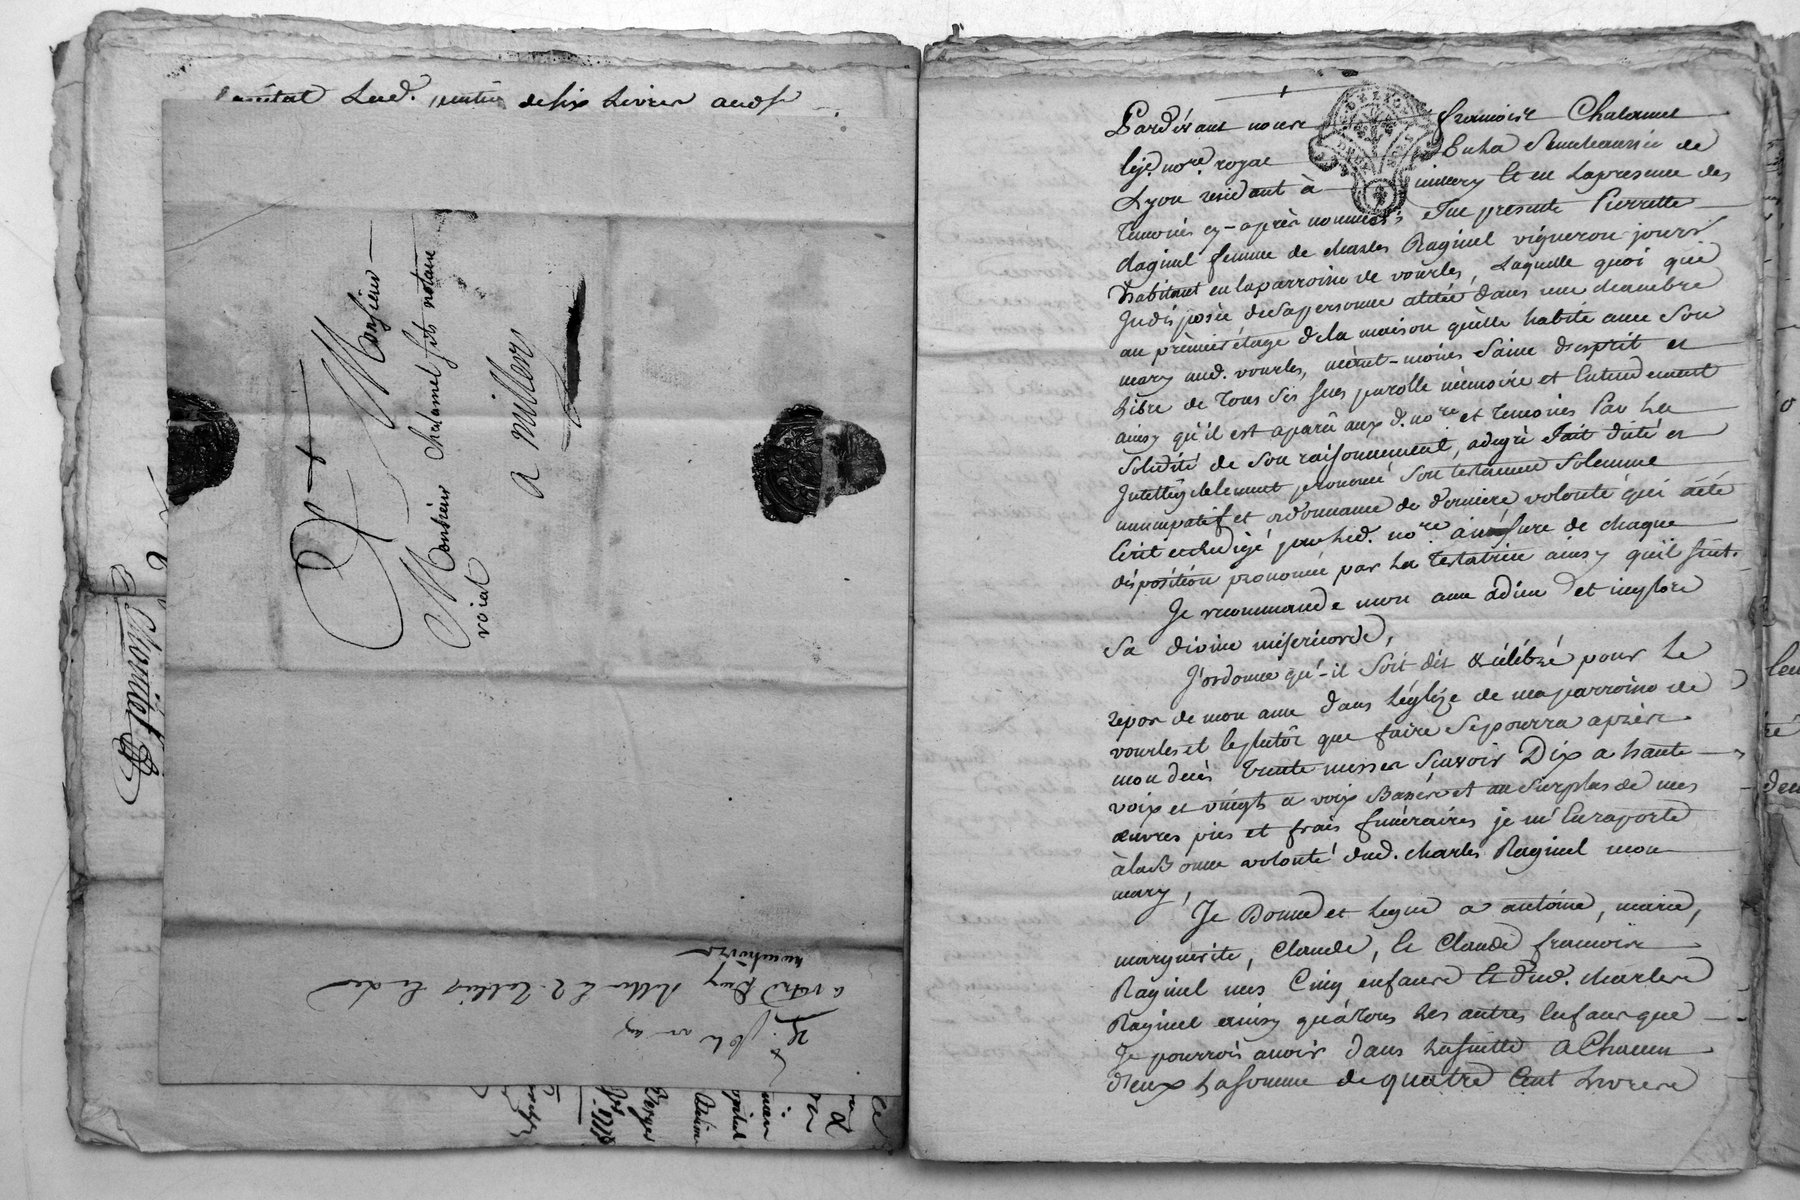 Led. rentier de six Livres aud.
Monsieur
Monsieur Chalamel fils notaire
roial
a millery
Pardevant nous françoise Chalamel
Cj.e no.re royal En La Senechaussée de
Lyon residant à millery Et en La presence des
Temoins cy-après nommés Fut presente Pierrette
Raginel femme de charles Raginel vigneron jour.r
habitant en la parroisse de vourles, Laquelle quoi que
Indisposée de sa personne alitée dans une chambre
au prémier étage de la maison qu'elle habite avec Son
mary aud. vourles, néant-moins Saine d'esprit et
Libre de Tous Ses Sens parolle mémoire et Entendement
ainsy qu'il est aparû aux d. no.re et temoins Par La
Solidité de Son raisonnement, a de gré Fait dicté et
Intelligiblement prononcé Son testament Solemne
nuncupatif et ordonnance de derniere volonté qui a été
Ecrit et redigé par Led. no.re à mésure de chaque
disposition prononcée par La Testatrice ainsy qu'il Suit.
Je recommande mon ame à dieu et implore
Sa divine misericorde,
J'ordonne qu'-il Soit dit & célébré pour Le
repos de mon ame dans L'église de ma parroisse de
vourles et Le plutôt que faire Se pourra après
mon decès Trente messes Scavoir Dix a haute
voix et vingt a voix Basse et au Surplus de mes
œuvres pies et frais funéraires je m'En raporte
à la Bonne volonté dud. charles Raginel mon
mary,
Je Donne et Legue a antoine, marie,
marguerite, Claude, & Claude françoise
Raginel mes Cinq enfans Et dud. charles
Raginel ainsy qu'à Tous Les autres Enfans que
Je pourrois avoir dans La Suitte a Chacun
d'eux La Somme de quatre Cent Livres